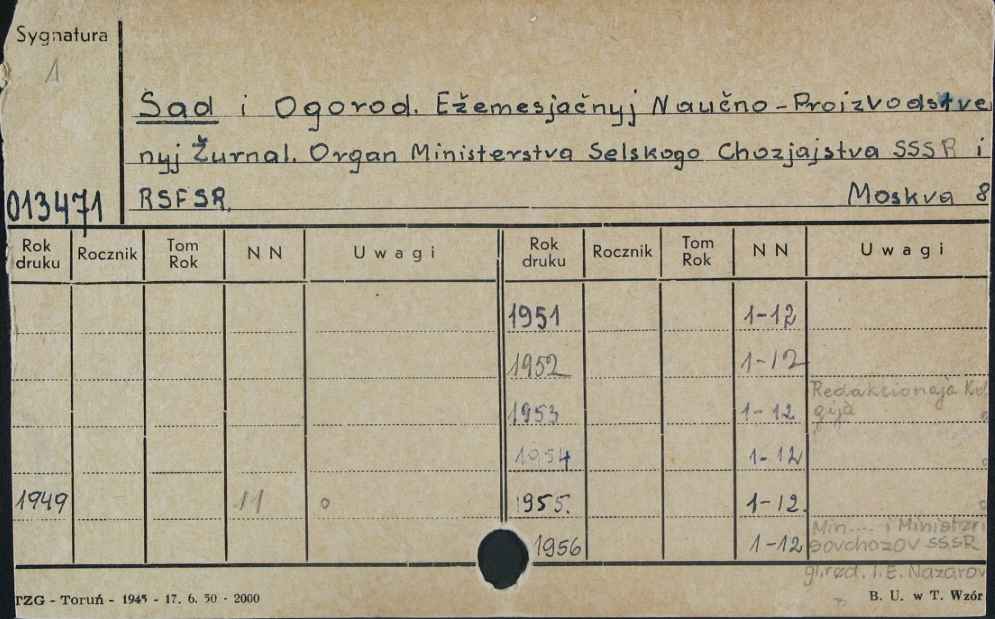 Sygnatura
1
Sad i Ogorod. Ežemesjačnyj Naučno-Proizvodstve
nyj Žurnal. Organ Ministerstva Selskogo Chozjajstva SSSR i
013471 RSFSR. Moskva 8
Rok druku Rocznik Tom Rok NN Uwagi Rok druku Rocznik Tom Rok NN Uwagi
1951 1-12
1952 1-12
Redakcionaja Kol
1953 1-12 gija
1954 1-12
1949 11 1955. 1-12.
Min.... i Ministeri
1956 1-12 Sovchozov SSSR
gl.red. I.E. Nazarov
TZG - Toruń - 1945 - 17. 6. 50 - 2000 B. U. w T. Wzór